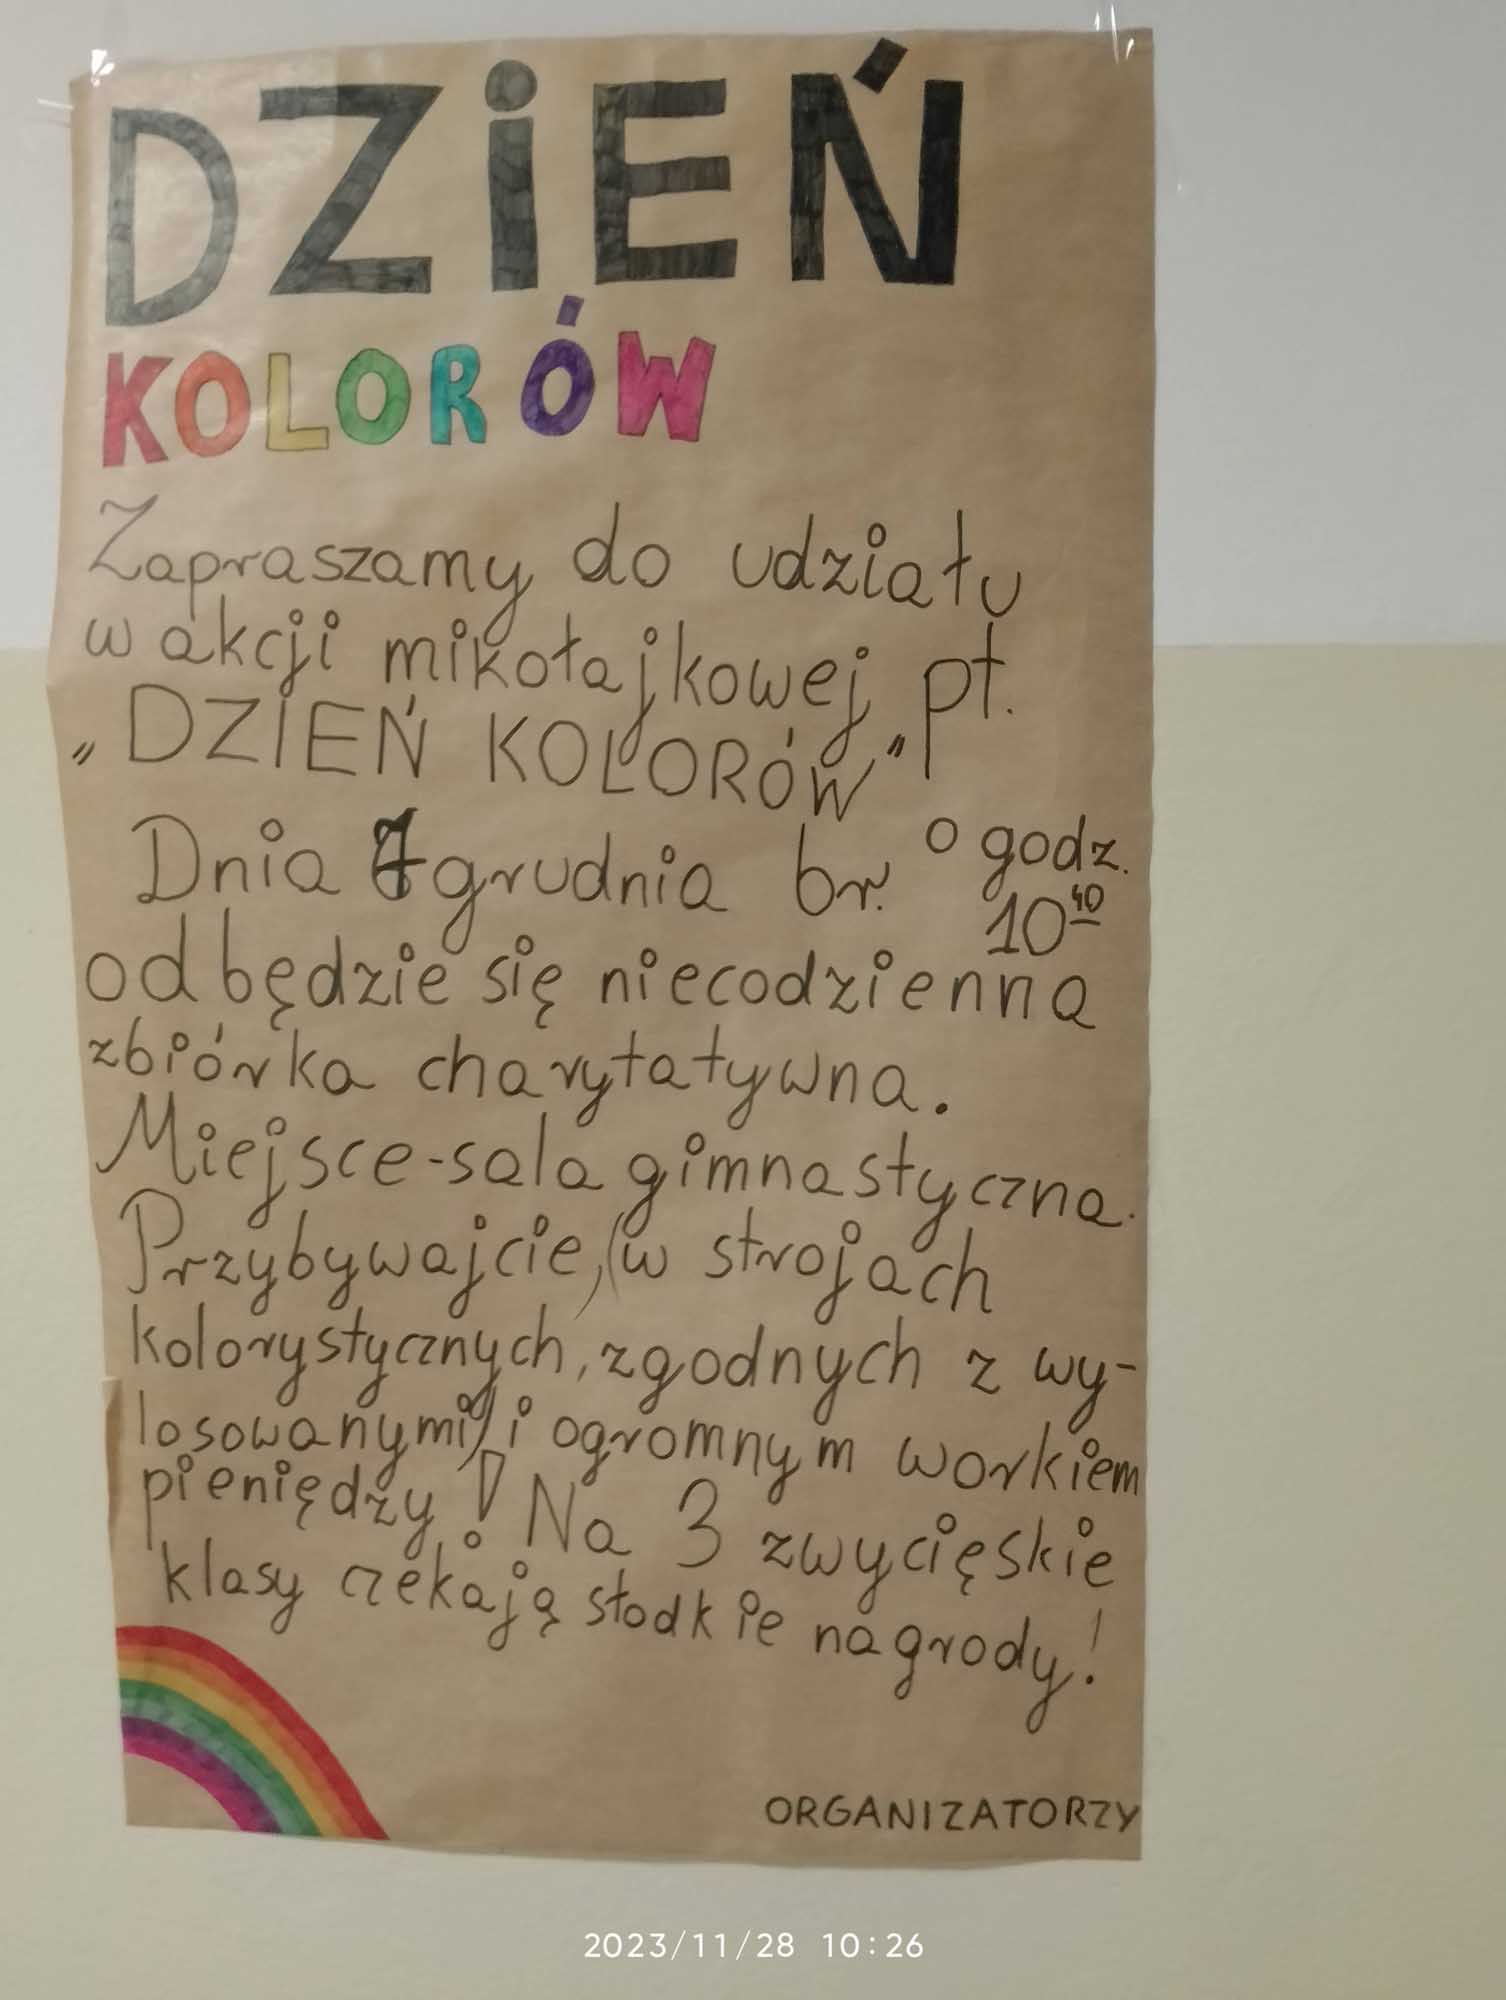 DZiEŃ
KOLORÓW
Zapraszamy do udziału
w akcji mikołajkowej pt.
„DZIEŃ KOLORÓW"
Dnia 7 grudnia br. o godz.
10⁴⁰
odbędzie się niecodzienna
zbiórka charytatywna.
Miejsce-sala gimnastyczna.
Przybywajcie, (w strojach
kolorystycznych, zgodnych z wy-
losowanymi) i ogromnym workiem
pieniędzy! Na 3 zwycięskie
klasy czekają słodkie nagrody!
ORGANIZATORZY
2023/11/28 10:26